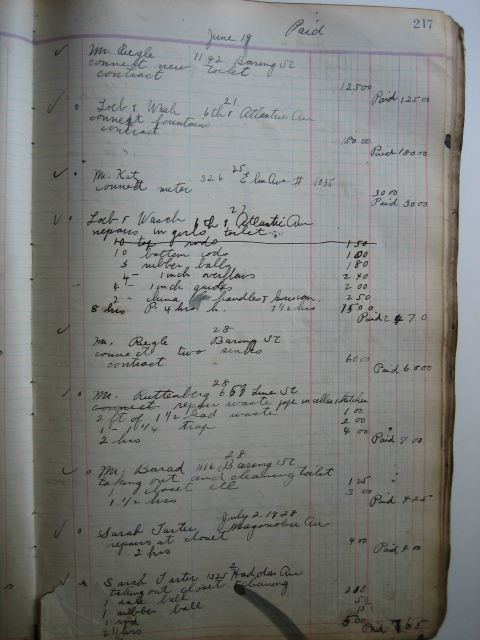 217
June 19 Paid
Mr. Riegle 1142 Baring St
connect new toilet
contract
125 00
Paid 125 00
21
Loeb & Wach 6th & Atlantic Ave
connect fountain
contract
180 00
Paid 180 00
25
Mr. Katz 326 Elm Ave #
connect meter
30 00
Paid 30 00
27
Loeb & Wasch 6th & Atlantic Ave
repairs in girls toilet
10 top rods 1 50
10 bottom rods 1 00
3 rubber balls 1 80
4 - 1 inch overflows 2 40
4 - 1 inch guides 2 00
2 - china handles & 2 50
8 hrs P 4 hrs h. 7 1/2 hrs 15 00
Paid
28
Mr. Riegle Baring St
connect two sinks
contract
60 00
Paid 60 00
28
Mr. Ruttenberg Line St
connect repair waste pipe in cellar & kitchen
2 ft of 1 1/2 lead waste 1 00
1 - 1 1/4 trap 2 00
2 hrs 4 00
Paid 7 00
28
Mr. Barad 1116 Baring St
taking out and cleaning toilet
1 closet ell 1 25
1 1/2 hrs 3 00
Paid 4 25
July 2, 1928
Sarah Tarter Magnolia Av
repairs at closet
2 hrs
4 00
Paid 4 00
2
Sarah Tarter 1325 Haddon Av
taking out closet & cleaning
1 ball 2 00
1 rubber ball 50
1 rod 15
2 1/2 hrs 5 00
Paid 7 65